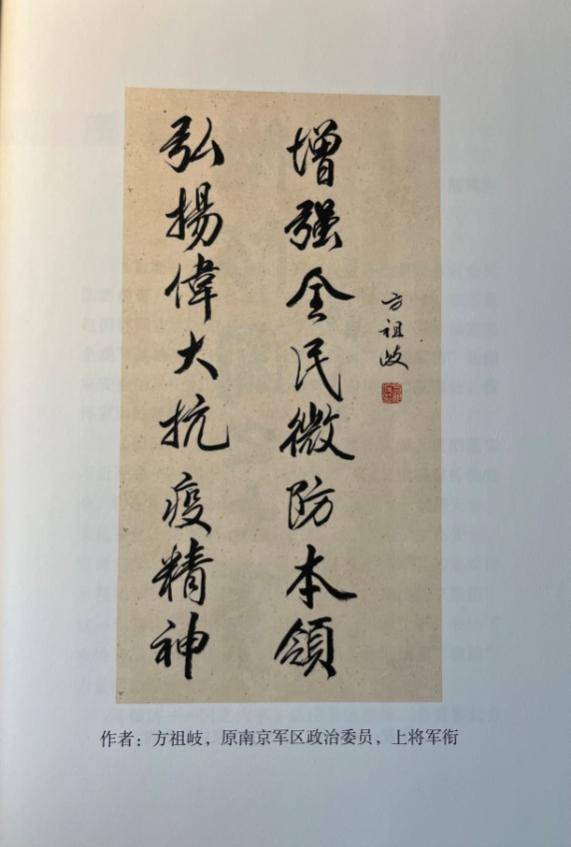 弘揚偉大抗疫精神
增强全民微防本領
方祖岐
作者：方祖岐，原南京军区政治委员，上将军衔